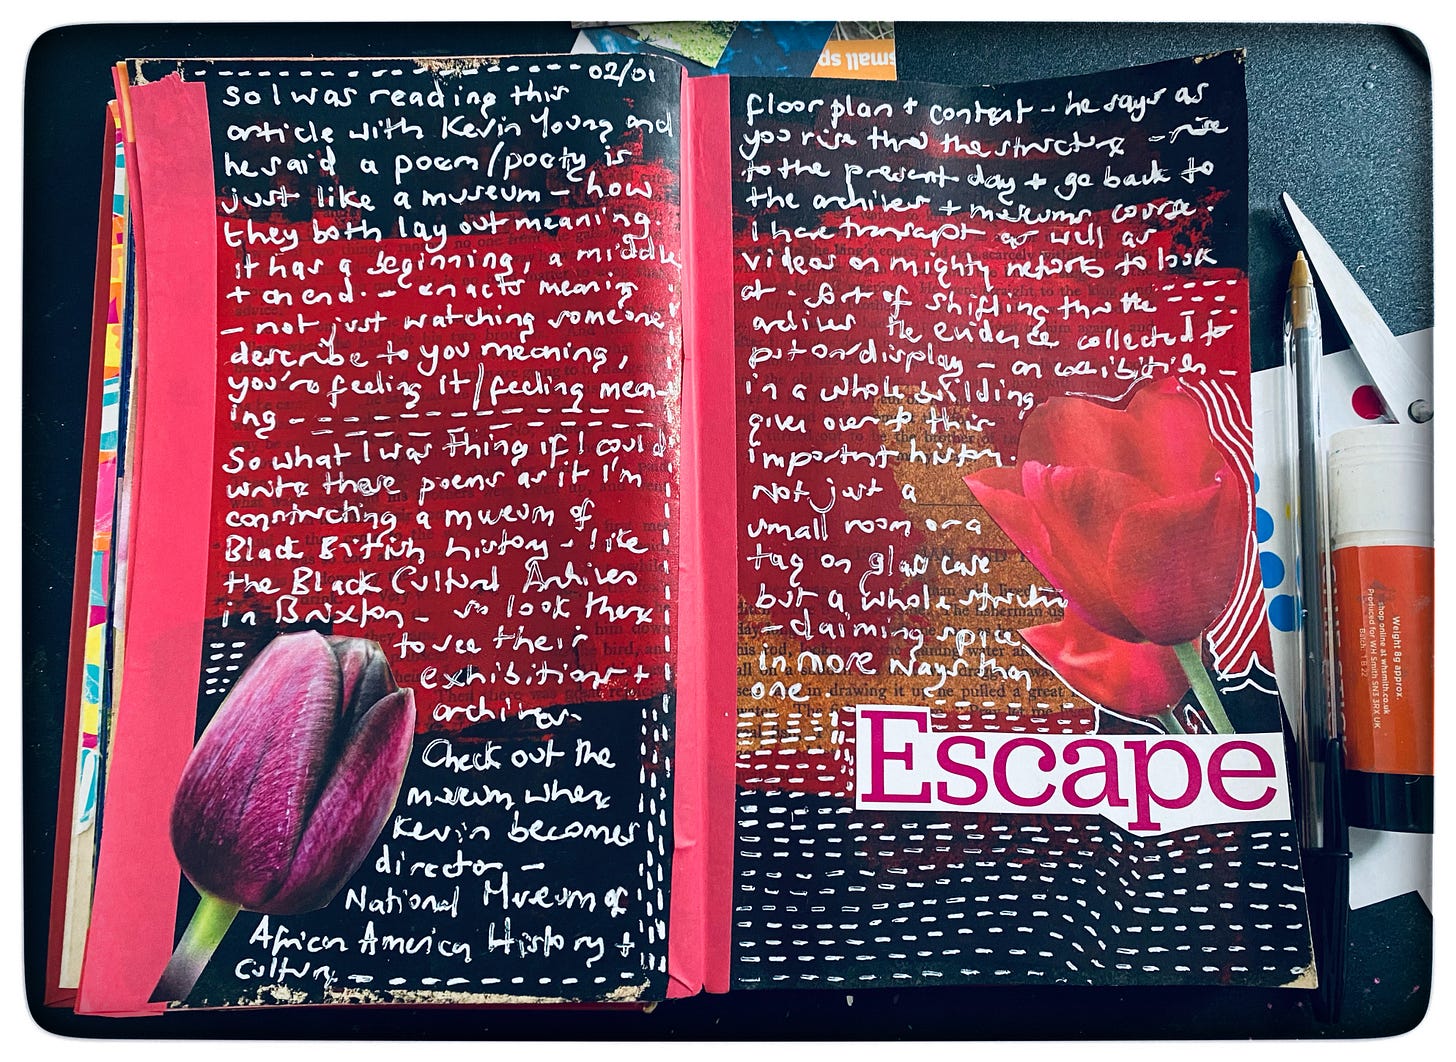 02/01
So I was reading this
article with Kevin Young and
he said a poem/poety is
just like a museum – how
they both lay out meaning.
it has a beginning, a middle
+ an end. – enacts meaning
– not just watching someone
describe to you meaning,
you're feeling it/feeling mean-
ing
So what I was thing if I could
write these poems as if I'm
constructing a museum of
Black British history – like
the Black Cultural Archives
in Brixton – so look there
to see their
exhibitions +
archives.
Check out the
museum where
Kevin becomes
director –
National Museum of
African American History +
Culture
floor plan + content – he says as
you rise thro the structure – rise
to the present day + go back to
the archives + museums course.
I have transcript as well as
videos on mighty networks to look
at – sort of shifting thro the
archives the evidence collected to
put on display – an exhibition –
in a whole building
given over to this
important history.
Not just a
small room or a
tag on glass case
but a whole structure
– claiming space
in more ways than
one.
Escape
small sp
Weight 8g approx.
shop online at whsmith.co.uk
Produced for WH Smith SN3 3RX UK